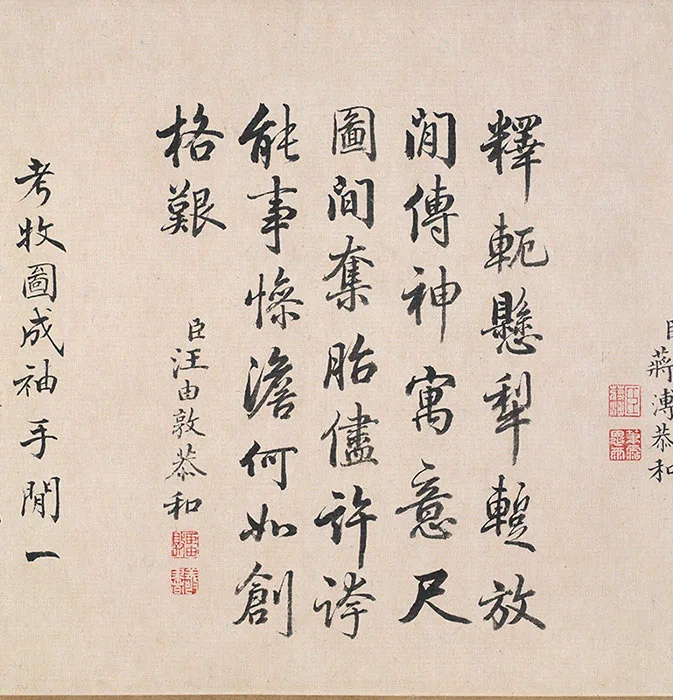 臣蔣溥恭和
釋軛懸犁暫放
閒傳神寓意尺
圖間奪胎儘許誇
能事慘澹何如創
格艱
臣汪由敦恭和
考牧圖成袖手閒一